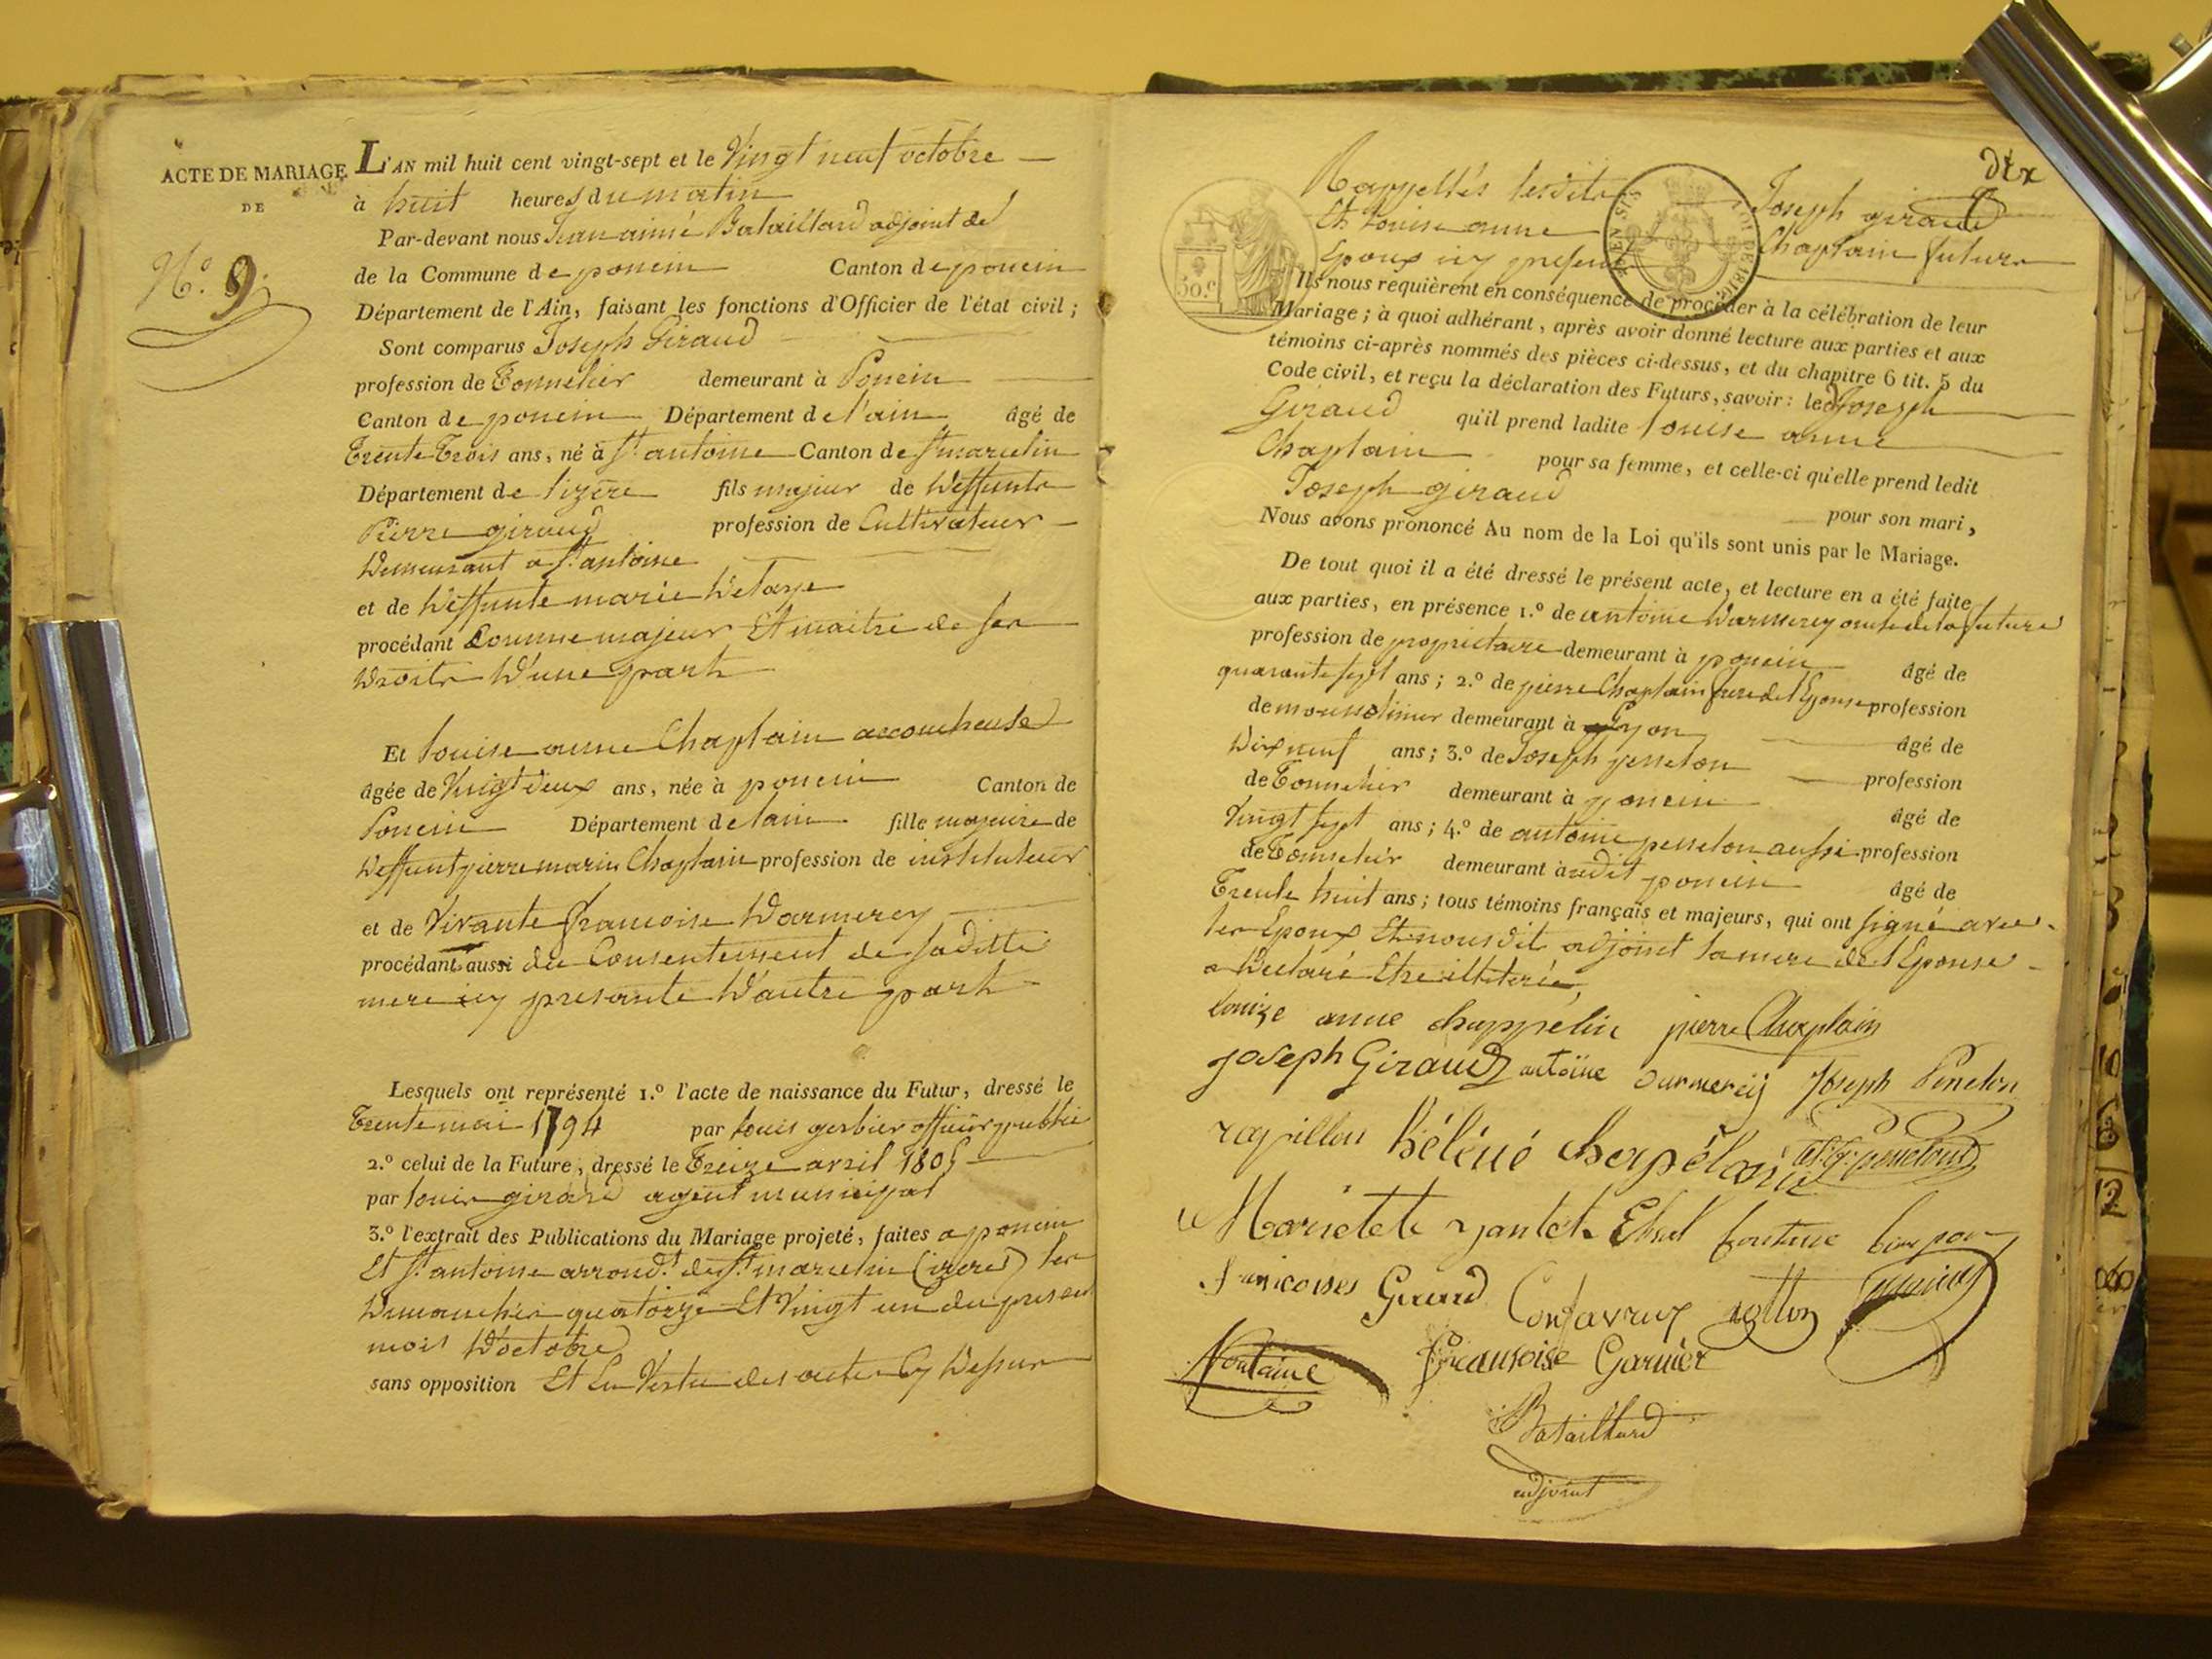 ACTE DE MARIAGE
DE
N.º 9.
L'AN mil huit cent vingt-sept et le Vingt neuf octobre
à huit heures du matin
Par-devant nous Jean aimé Bataillard adjoint de
de la Commune de poncin Canton de poncin
Département de l'Ain, faisant les fonctions d'Officier de l'état civil ;
Sont comparus Joseph Giraud
profession de Tonnelier demeurant à Poncin
Canton de poncin Département de l'ain âgé de
Trente Trois ans, né à St. antoine Canton de St marcelin
Département de l'izère fils majeur de deffunts
Pierre giraud profession de Cultivateur
Demeurant a St. antoine
et de deffunte marie Delaye
procédant Comme majeur Et maitre de ses
Droits D'une part
Et louise anne Chaplain accoucheuse
âgée de Vingt deux ans, née à poncin Canton de
Poncin Département de lain fille majeure de
Deffunt pierre marin Chaplain profession de instituteur
et de Vivante francoise Darmerey
procédant aussi du Consentement de saditte
mere icy presante D'autre part
Lesquels ont représenté 1.º l'acte de naissance du Futur, dressé le
Trente mai 1794 par louis gerbier officier public
2.º celui de la Future, dressé le Treize avril 1805
par louis girard agent municipal
3.º l'extrait des Publications du Mariage projeté, faites a poncin
Et St. antoine arrond.t de St. marcelin (izere) les
Dimanches quatorze Et Vingt un du présent
mois D'octobre
sans opposition Et En Vertu des actes Cy Dessus
dix
Rappellés lesdits Joseph giraud
Et louise anne Chaplain futurs
Epoux icy presents
50.c
Ils nous requièrent en conséquence de procéder à la célébration de leur
Mariage ; à quoi adhérant, après avoir donné lecture aux parties et aux
témoins ci-après nommés des pièces ci-dessus, et du chapitre 6 tit. 5 du
Code civil, et reçu la déclaration des Futurs, savoir : led Joseph
Giraud qu'il prend ladite louise anne
Chaplain pour sa femme, et celle-ci qu'elle prend ledit
Joseph giraud pour son mari,
Nous avons prononcé Au nom de la Loi qu'ils sont unis par le Mariage.
De tout quoi il a été dressé le présent acte, et lecture en a été faite
aux parties, en présence 1.º de antoine Darmerey oncle de la future
profession de propriétaire demeurant à poncin âgé de
quarante sept ans ; 2.º de pierre Chaplain frere de l'Epouse profession
de mousselinier demeurant à Lyon âgé de
Dix neuf ans ; 3.º de Joseph penelon profession
de Tonnelier demeurant à poncin âgé de
Vingt sept ans ; 4.º de antoine penelon aussi profession
de Tonnelier demeurant à udit poncin âgé de
Trente huit ans ; tous témoins français et majeurs, qui ont signé avec
les Epoux Et nousdit adjoint la mere de l'Epouse
a Declaré Etre illiterée,
louize anne chappelin pierre Chaplain
joseph Giraud antoine Darmerey Joseph Penelon
rapillon héléné chapélain
Mariette
francoises Girard Confavreux
Fontaine Francoise Garnier
Bataillard
adjoint